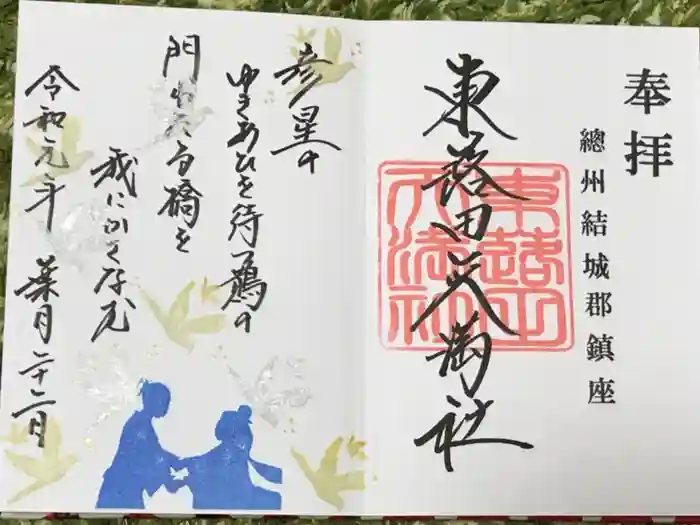 奉拝
總州結城郡鎮座
東蕗田天満社
彦星の
ゆきあひを待つ鵲の
門わたる橋を
我にかさなむ
令和元年 葉月二十二日